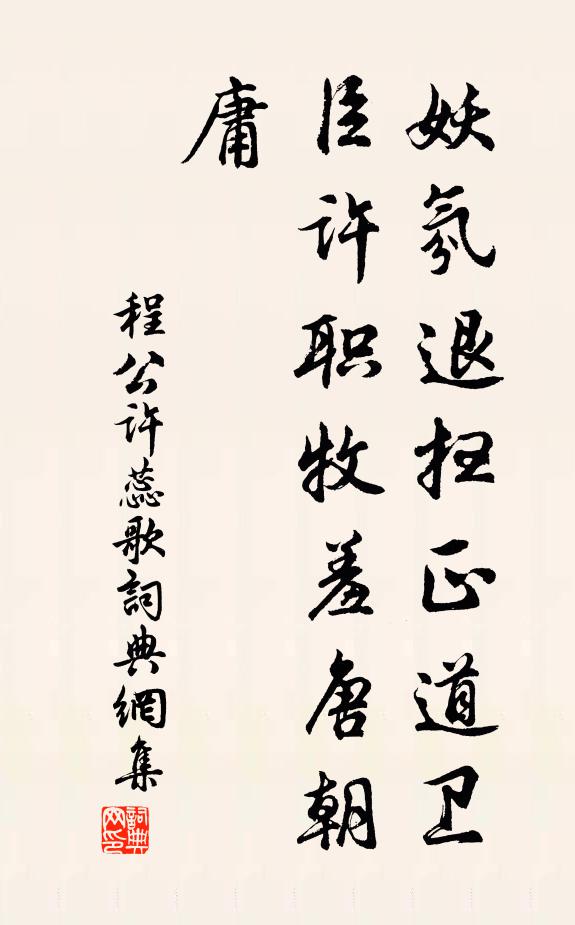 妖氛退扫正道卫
臣许职牧羞唐朝
庸
程公许蕊歌詞典網集
詞典
网印